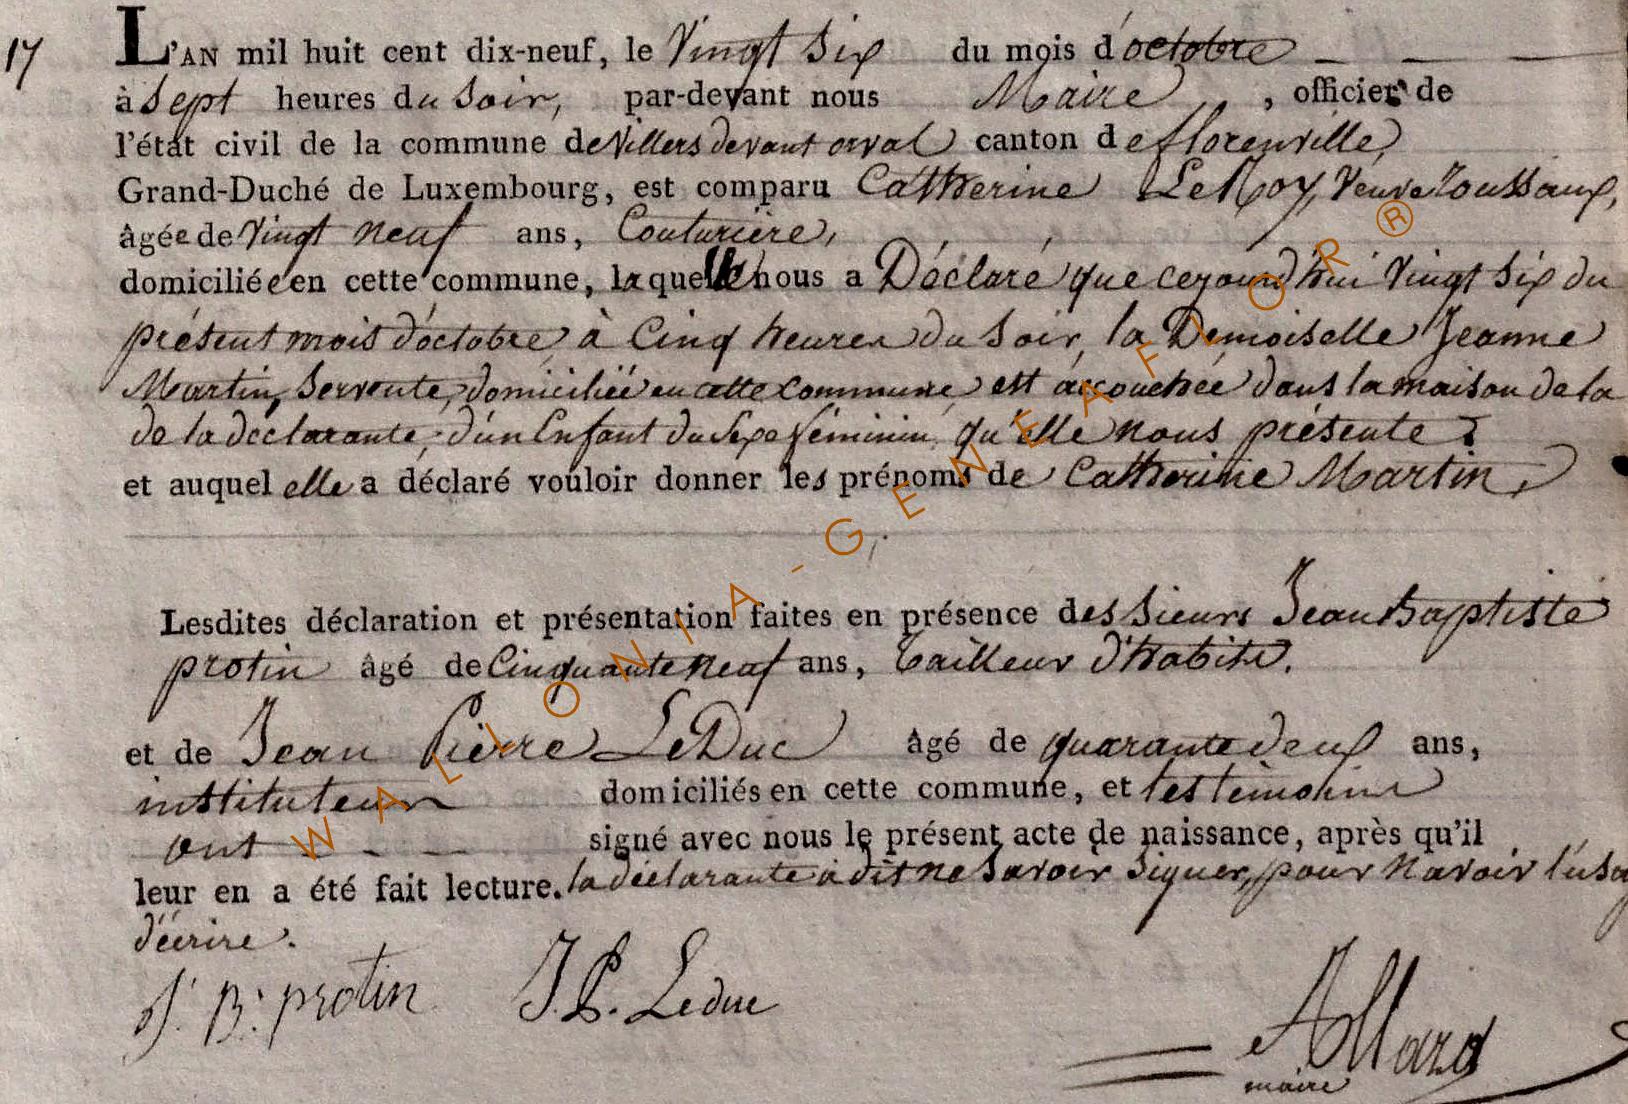 17
L'AN mil huit cent dix-neuf, le Vingt Six du mois d'octobre
à Sept heures du Soir, par-devant nous Maire, officier de
l'état civil de la commune de Villers devant orval canton de florenville,
Grand-Duché de Luxembourg, est comparu Catherine LeRoy, Veuve Roussaux,
âgée de Vingt neuf ans, Couturière,
domiciliée en cette commune, laquelle nous a Déclaré que cejourd'hui Vingt Six du
présent mois d'octobre, à Cinq heures du Soir, la Demoiselle Jeanne
Martin, Servente, domiciliée en cette Commune, est accouchée dans la maison de la
de la déclarante, d'un Enfant du Sexe féminin, qu'elle nous présente
et auquel elle a déclaré vouloir donner les prénoms de Catherine Martin,
Lesdites déclaration et présentation faites en présence des Sieurs Jean Baptiste
protin âgé de Cinquante neuf ans, tailleur d'habits.
et de Jean Pierre LeDuc âgé de quarante deux ans,
instituteur domiciliés en cette commune, et les témoins
ont signé avec nous le présent acte de naissance, après qu'il
leur en a été fait lecture. la déclarante à dit ne Savoir Signer, pour n'avoir l'usa
d'écrire.
J. B. protin J. P. Leduc
Allard
maire
WALLONIA-GENEAFLOR®